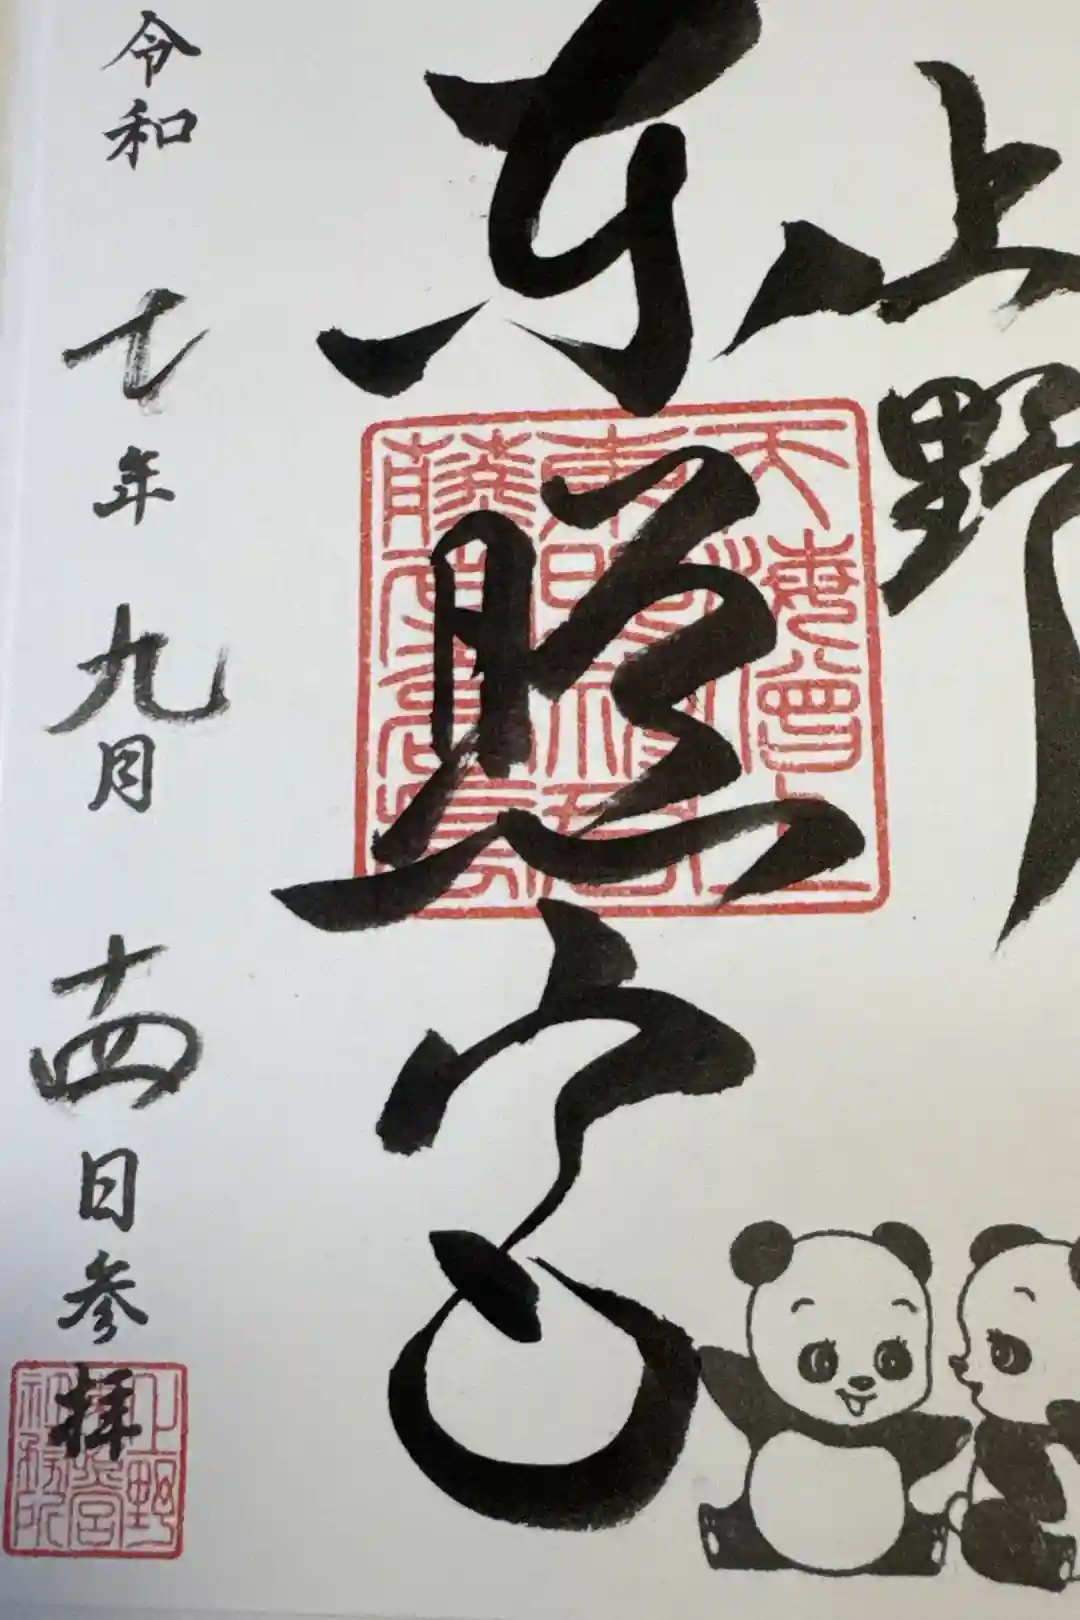 上野
東照宮
令和七年九月十四日参拝
上野
東照宮
社務所